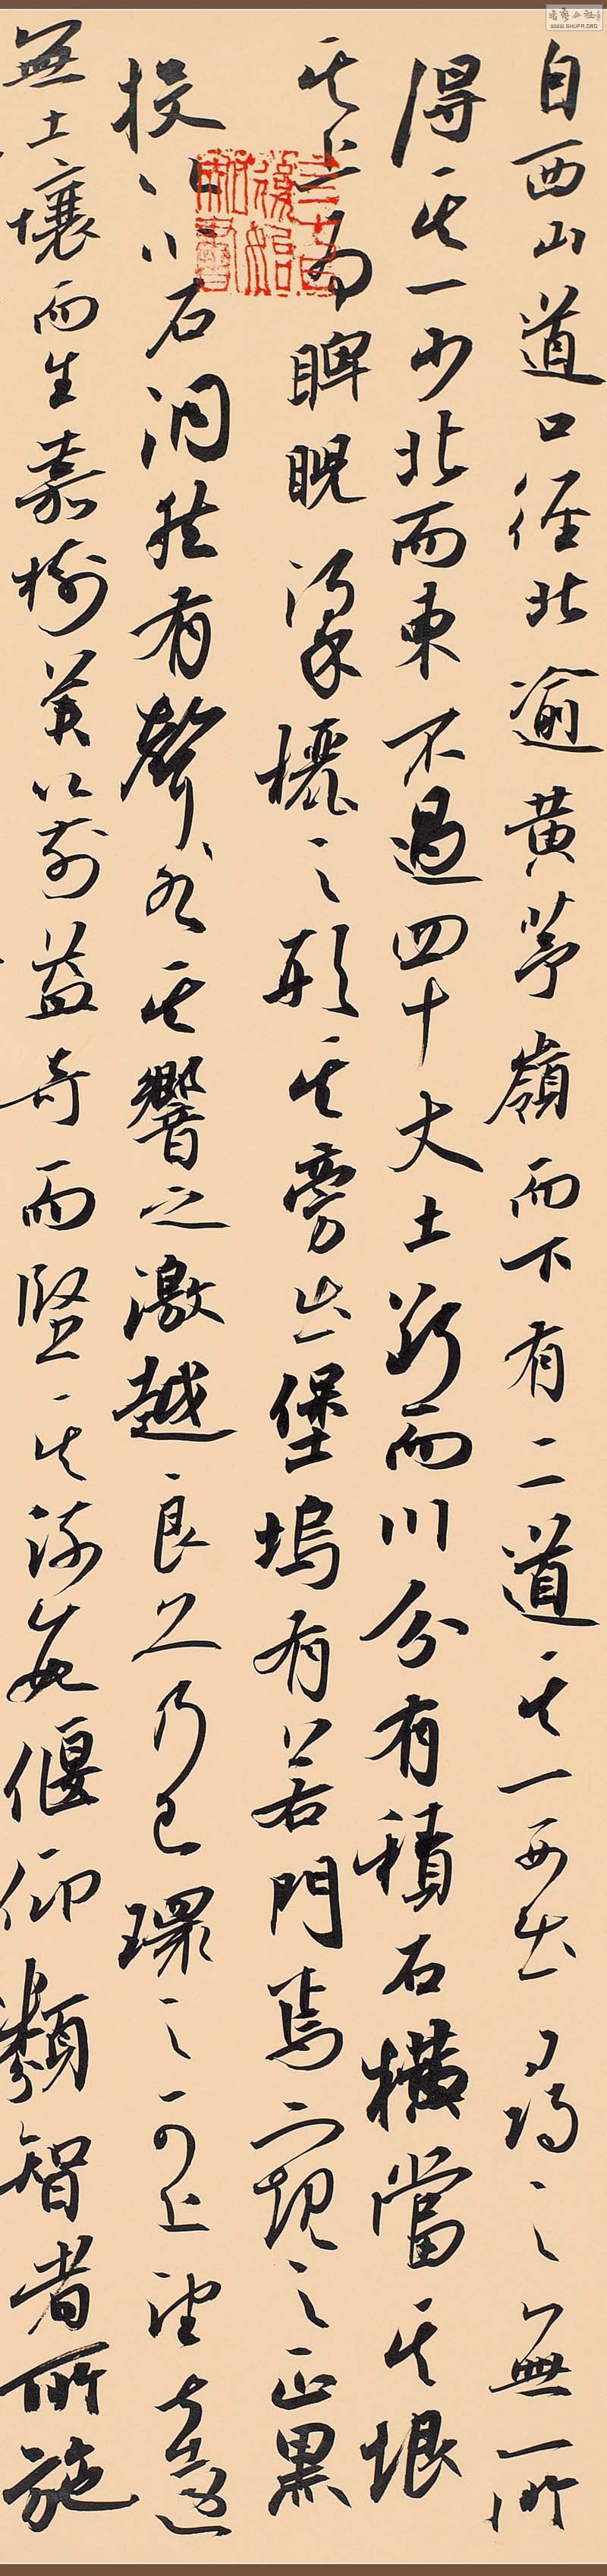 自西山道口徑北逾黃茅嶺而下有二道其一西出尋之無所
得其一少北而東不過四十丈土斷而川分有積石橫當其垠
其上為睥睨梁欐之形其旁出堡塢有若門焉窺之正黑
投以小石洞然有聲水其響之激越良久乃已環之可上望甚遠
無土壤而生嘉樹美箭益奇而堅其疏數偃仰類智者所施
WWW.SHUFA.ORG